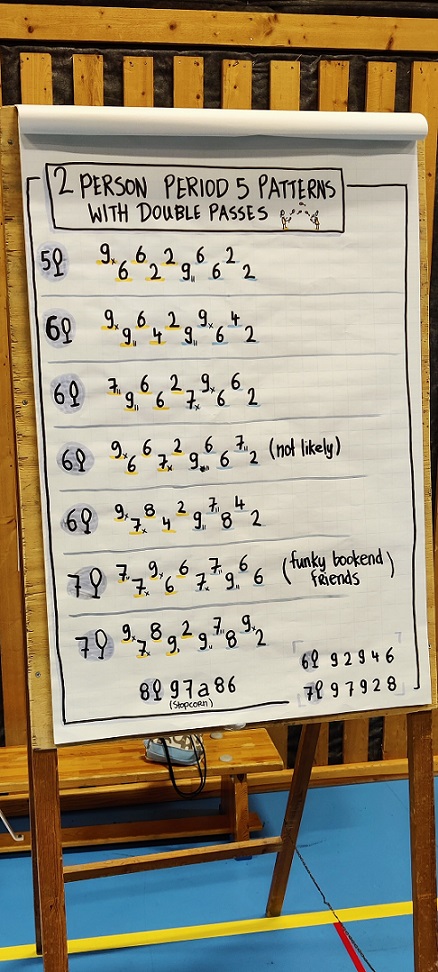 2 PERSON PERIOD 5 PATTERNS
WITH DOUBLE PASSES
5 9x 6 6 2 2 9ıı 6 6 2 2
6 9x 9ıı 6 4 2 9ıı 9x 6 4 2
6 7ıı 9ıı 6 6 2 7x 9x 6 6 2
6 9x 6 6 7x 2 9ıı 6 6 7ıı 2 (not likely)
6 9x 7x 8 4 2 9ıı 7ıı 8 4 2
7 7x 7x 9x 6 6 7x 7ıı 9ıı 6 6 (funky bookend friends)
7 9x 7x 8 9x 2 9ıı 7ıı 8 9x 2
8 9 7 a 8 6
(Stopcorn)
6 9 2 9 4 6
7 9 7 9 2 8